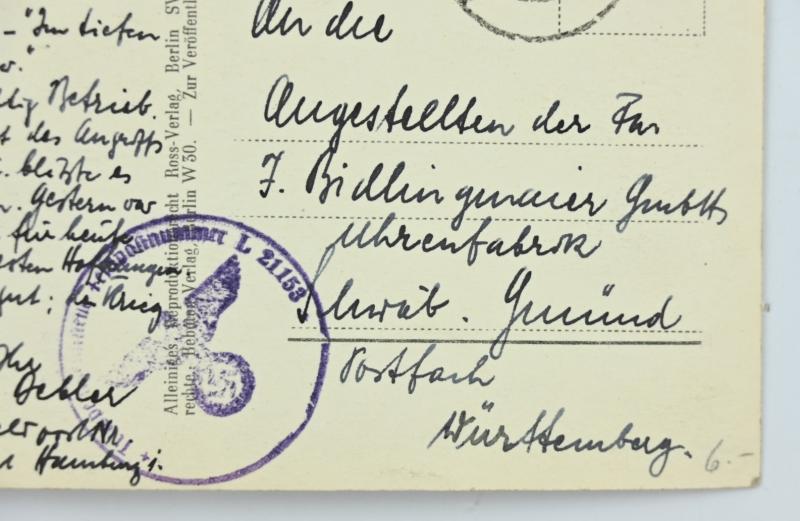 - "Im tiefen
Betrieb.
des Angriffs
blitzte es
Gestern war
für heute
Hoffnungen.
gut; der Krieg
Ihr
Oehler
Hamburg 1.
Alleiniges Reproduktionsrecht Ross-Verlag, Berlin SW
Verlag, Berlin W 30. — Zur Veröffentl
Feldpostnummer L 21153
An die
Angestellten der Fa
J. Bidlingmaier GmbH
Uhrenfabrik
Schwäb. Gmünd
Postfach
Württemberg.
6.-